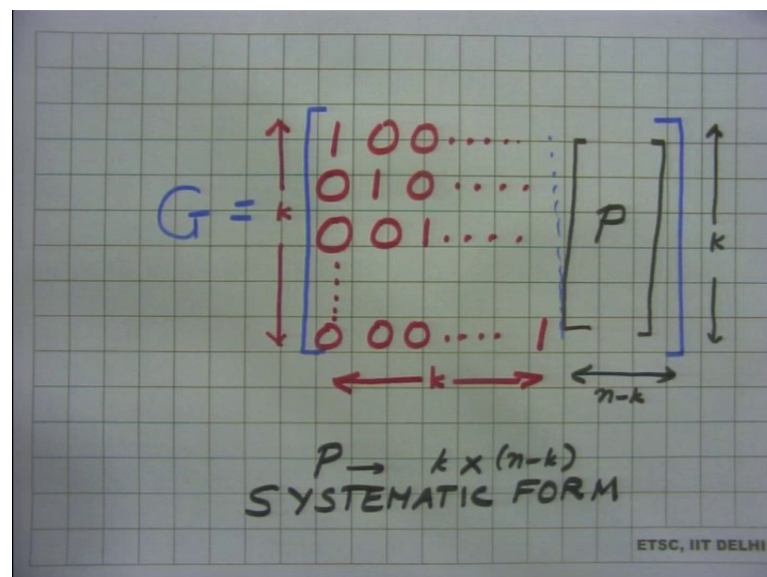 1 0 0 ......
0 1 0 ....
G = k 0 0 1 .... P k
0 0 0 .... 1
k n-k
P → k x (n-k)
SYSTEMATIC FORM
ETSC, IIT DELHI